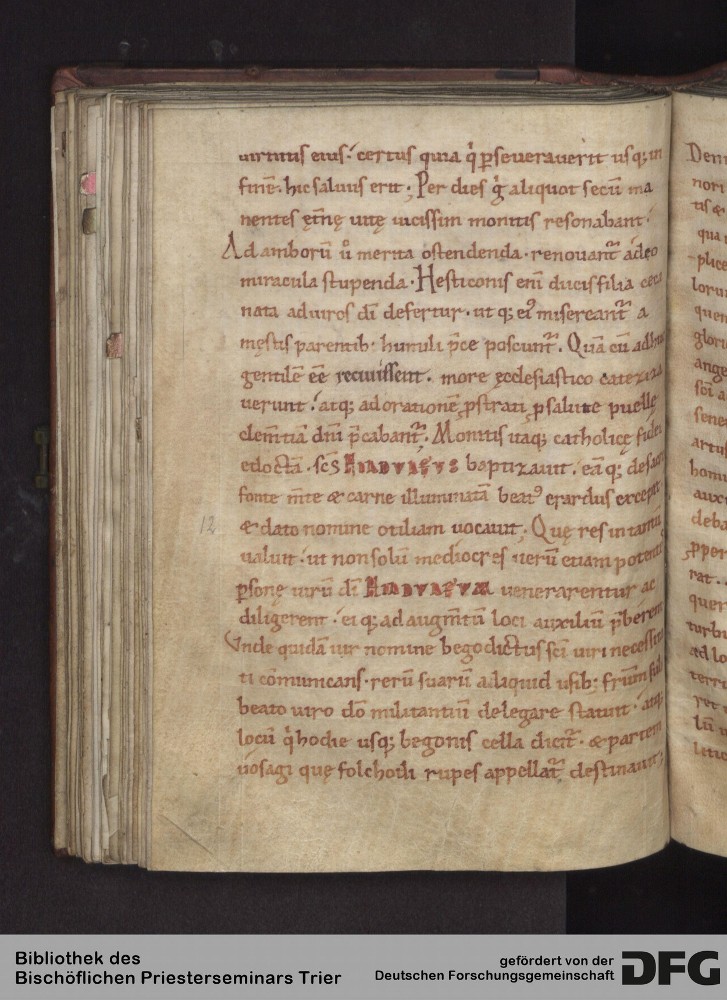 uirtutis eius ⁊ certus quia q̇ ꝑseuerauerit usq; in
finē. hic saluus erit; Per dies ġ aliquot secū ma
nentes ęt̄nę uitę uicissim monitis resonabant.
Ad amborū u̇o merita ostendenda. renouant᷑ adeo
miracula stupenda. Hesticonis eni ducis filia ceca
nata ad uiros dī defertur. ut q; ei᷒ misereant᷑ a
męstis parentib; humili p̄ce poscunt᷑. Quā cū adhuc
gentilē ēē
more ęcclesiastico
uerunt. atq; ad orationē ꝓstrati ꝓ salute puellę
clem̄tiā dn̄i p̄cabant᷑. Monitis itaq; catholicę fidei
edoctā. sc̄s HIDVLFVS baptizauit. eāq; de sacro
fonte m̄te & carne illuminatā beat᷒ erardus excepit.
12
& dato nomine otiliam uocauit; Quę res in tantū
ualuit. ut non solū mediocres uerū etiam potentes
ꝑsonę uirū dī HIDVLFVM uenerarentur ac
diligerent. ei q; ad augm̄tū loci auxiliū p̄berent.
Vnde quidā uir nomine begodictus sc̄i uiri necessita
ti cōmunicans. rerū suarū aliquid usib; fr̄um sub
beato uiro dō militantiū delegare statuit. atq;
locū q̇ hodie usq; begonis cella dicit᷑. & partem
uosagi quę folchodi rupes appellat᷑. destinauit;
Bibliothek des
Bischöflichen Priesterseminars Trier
gefördert von der
Deutschen Forschungsgemeinschaft
DFG